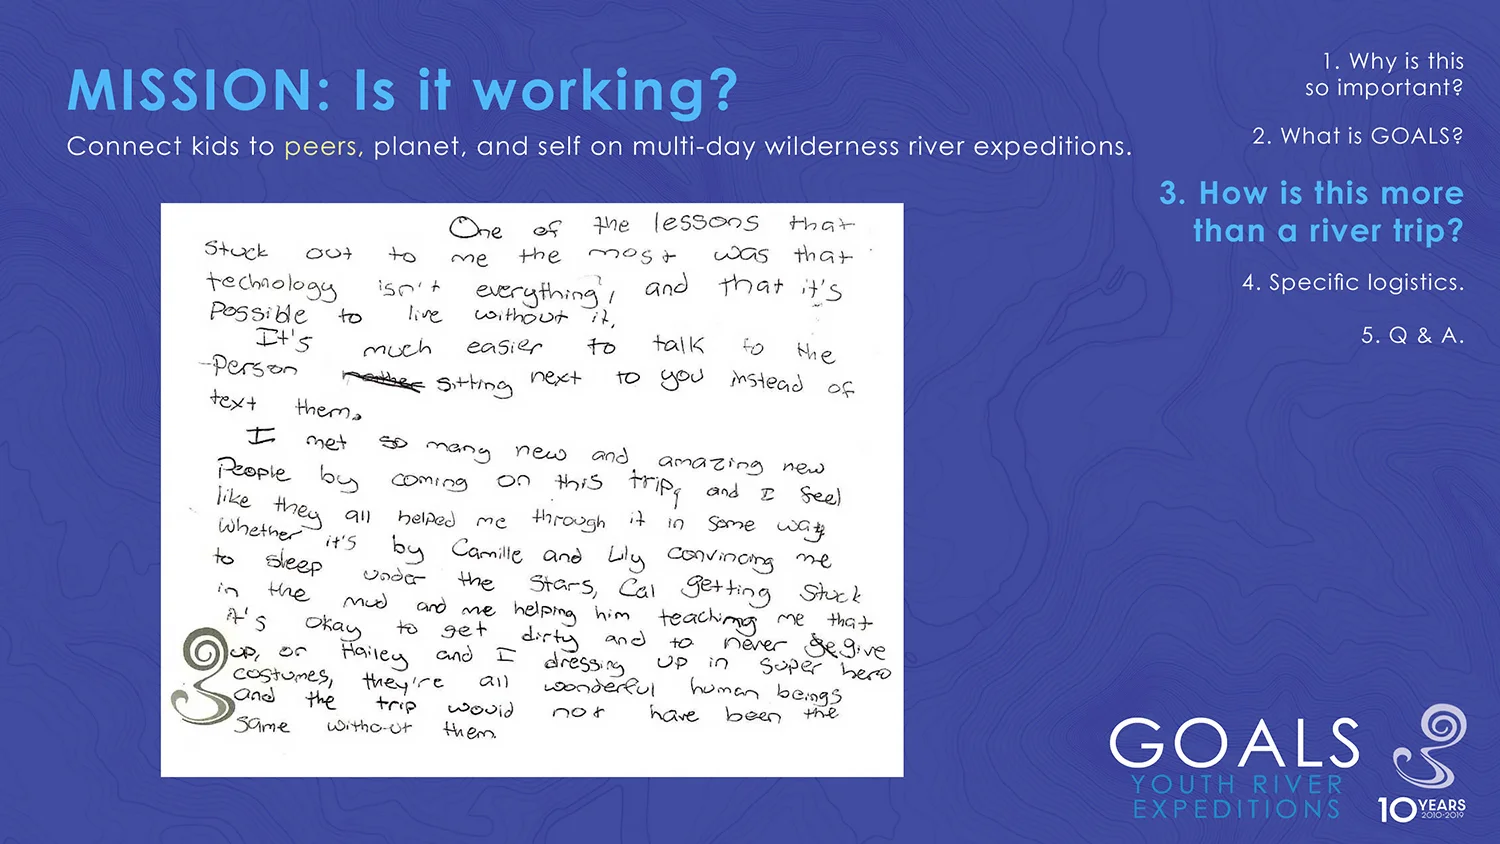 MISSION: Is it working?
Connect kids to peers, planet, and self on multi-day wilderness river expeditions.
1. Why is this
so important?
2. What is GOALS?
3. How is this more
than a river trip?
4. Specific logistics.
5. Q & A.
One of the lessons that
stuck out to me the most was that
technology isn't everything, and that it's
Possible to live without it.
It's much easier to talk to the
Person sitting next to you instead of
text them.
I met so many new and amazing new
People by coming on this trip, and I feel
like they all helped me through it in some way
Whether it's by Camille and Lily convincing me
to sleep under the stars, Cal getting stuck
in the mud and me helping him teaching me that
it's okay to get dirty and to never give
up, or Hailey and I dressing up in super hero
costumes, they're all wonderful human beings
and the trip would not have been the
same without them.
GOALS
YOUTH RIVER
EXPEDITIONS
10 YEARS
2010-2019